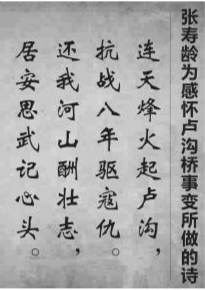 张寿龄为感怀卢沟桥事变所做的诗
连天烽火起卢沟，
抗战八年驱寇仇。
还我河山酬壮志，
居安思武记心头。